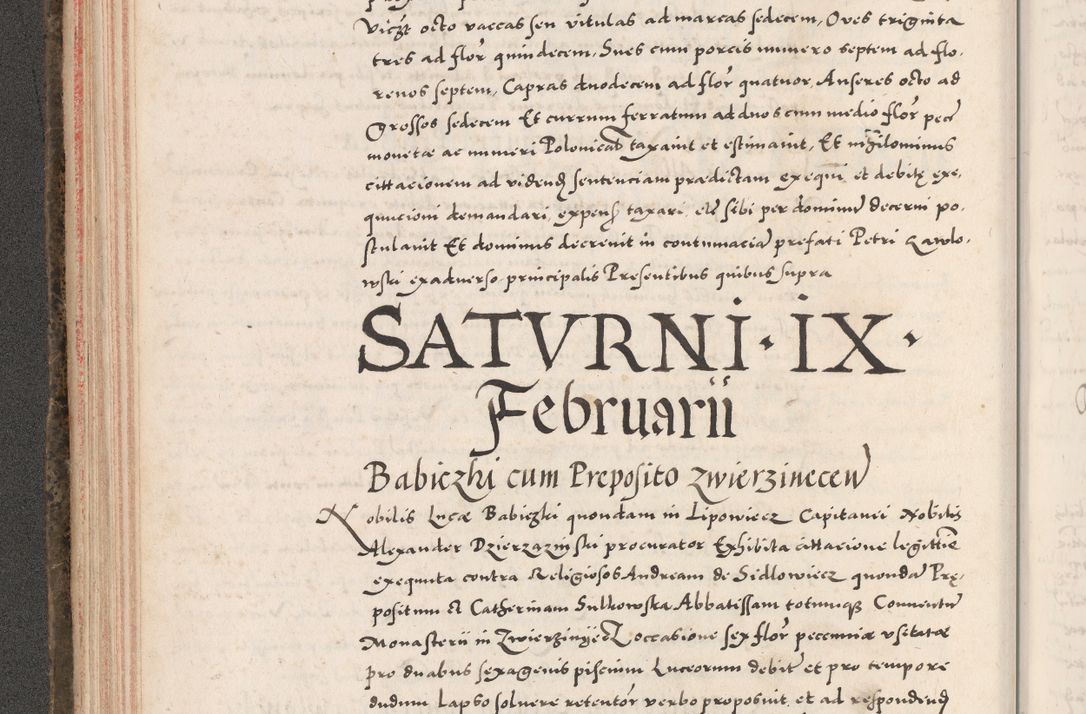 Vicżt octo vaccas seu vitulas ad marcas sedecem, Oves triginta
tres ad flor quindecem, Sues cum porcis numero septem ad flo,
renos septem, Capras duodecem ad flor quatuor, Anseres octo ad
Grossos sedecem Et currum ferratum ad duos cum medio flor pec
monetæ ac numeri Polonicas taxavit et estimavit, Et nihilominus
cittacionem ad videnḍ sentenciam prædictam exequui et debitę exe,
qution demandari, expens taxari, etc sibi per dominum decerni po,
stulavit Et dominus decrevit in contumacia prefati Petri Zawlo,
wski exadverso principalis Presentibus quibus supra
SATVRNI · IX ·
Februarii
Babiczki cum Preposito zwierzinecen
Nobilis Lucæ Babiczki quondam in Lipowiecz Capitanei Nobilis
Alexander Dzierzazinski procurator Exhibita cittacione legittime
exequuta contra Religiosos Andream de Sidlowiecz quonda Prę,
positum & Catherinam Sulkowska Abbatissam totumque Conventu
Monasterii in Zwierzinyecz occasione sex flor pecuniæ vsitatæ
pro duabus sexagenis piscium Luceorum debit et pro tempore
dudum lapso solvere retentor verbo proposuit, et ad respondenḍ